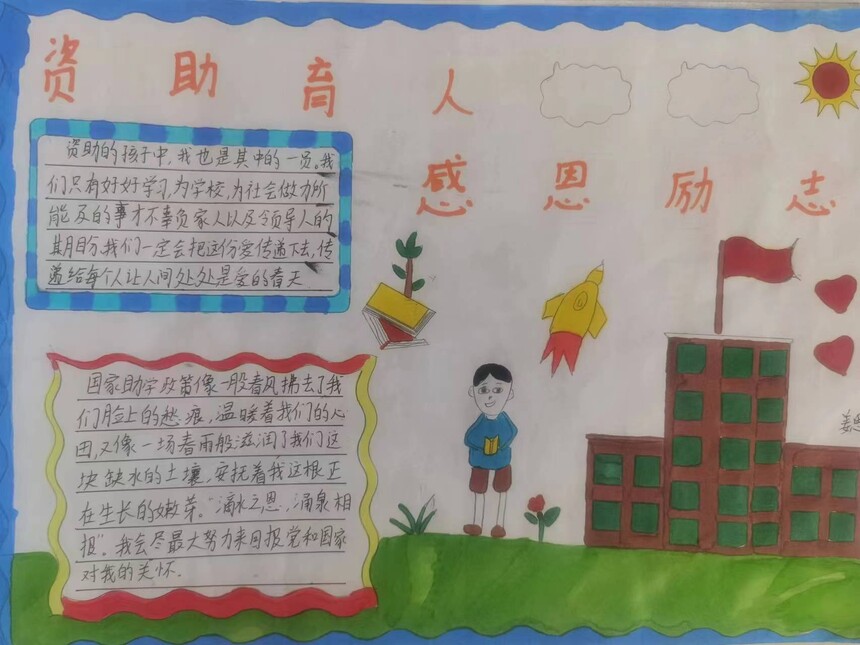 资助育人
感恩励志
资助的孩子中,我也是其中的一员。我
们只有好好学习,为学校,为社会做力所
能及的事才不辜负家人以及领导人的
期盼.我们一定会把这份爱传递下去,传
递给每个人让人间处处是爱的春天
国家助学政策像一般春风拂去了我
们脸上的愁痕,温暖着我们的心
田,又像一场春雨般滋润了我们这
块缺水的土壤,安抚着我这根正
在生长的嫩芽。"滴水之恩,涌泉相
报"。我会尽最大努力来回报党和国家
对我的关怀.
姜